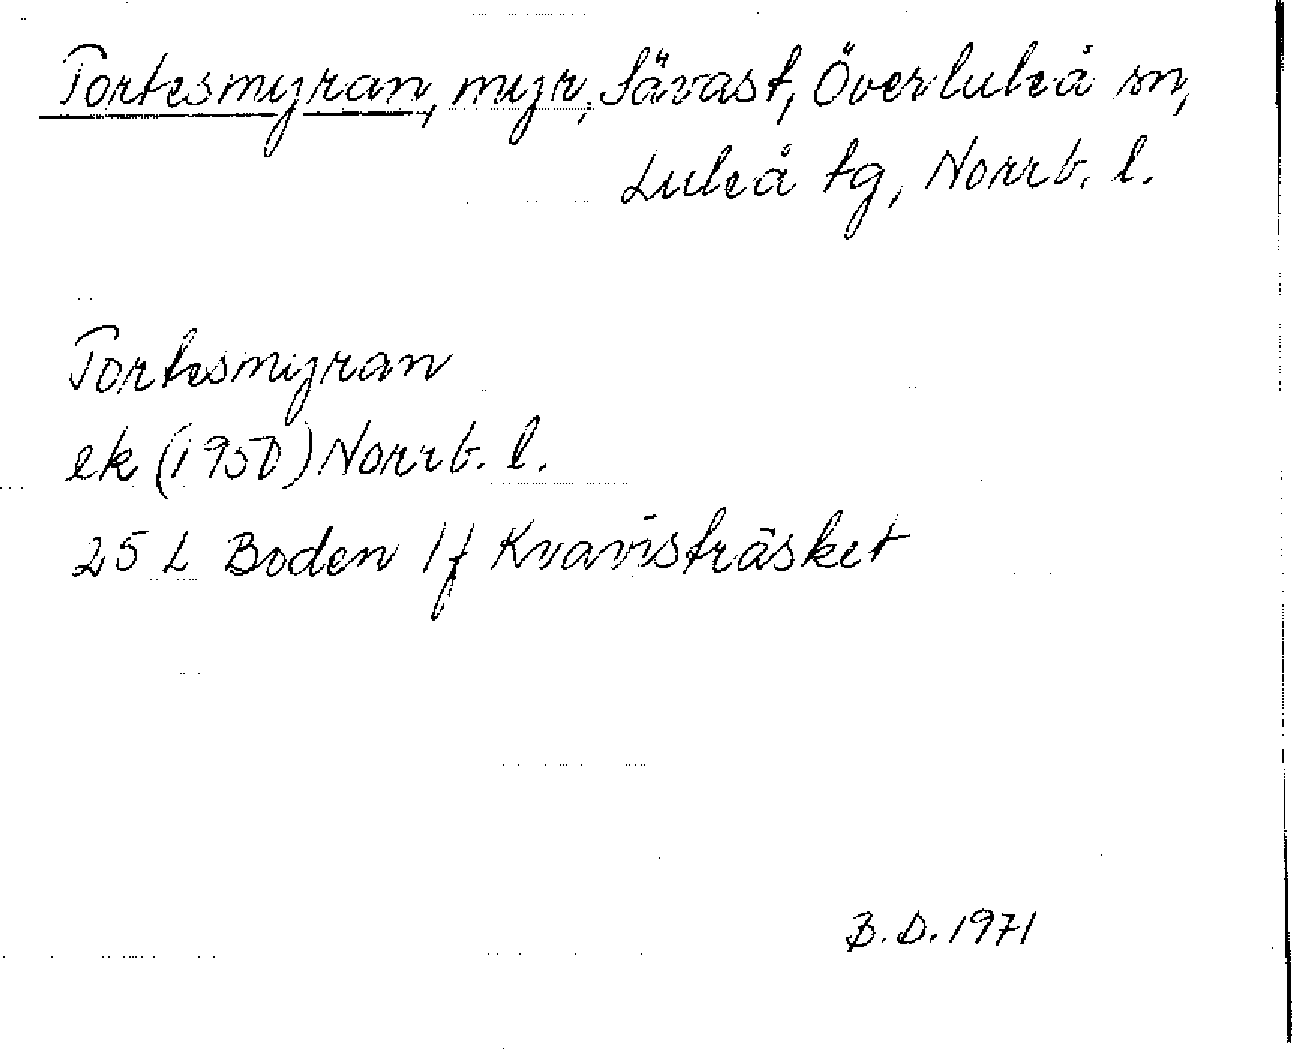 Tortesmyran, myr, Sävast, Överluleå sn,
Luleå tg, Norrb. l.
Tortesmyran
ek (1950) Norrb. l.
25 L Boden 1f Kvavisträsket
B.D. 1971